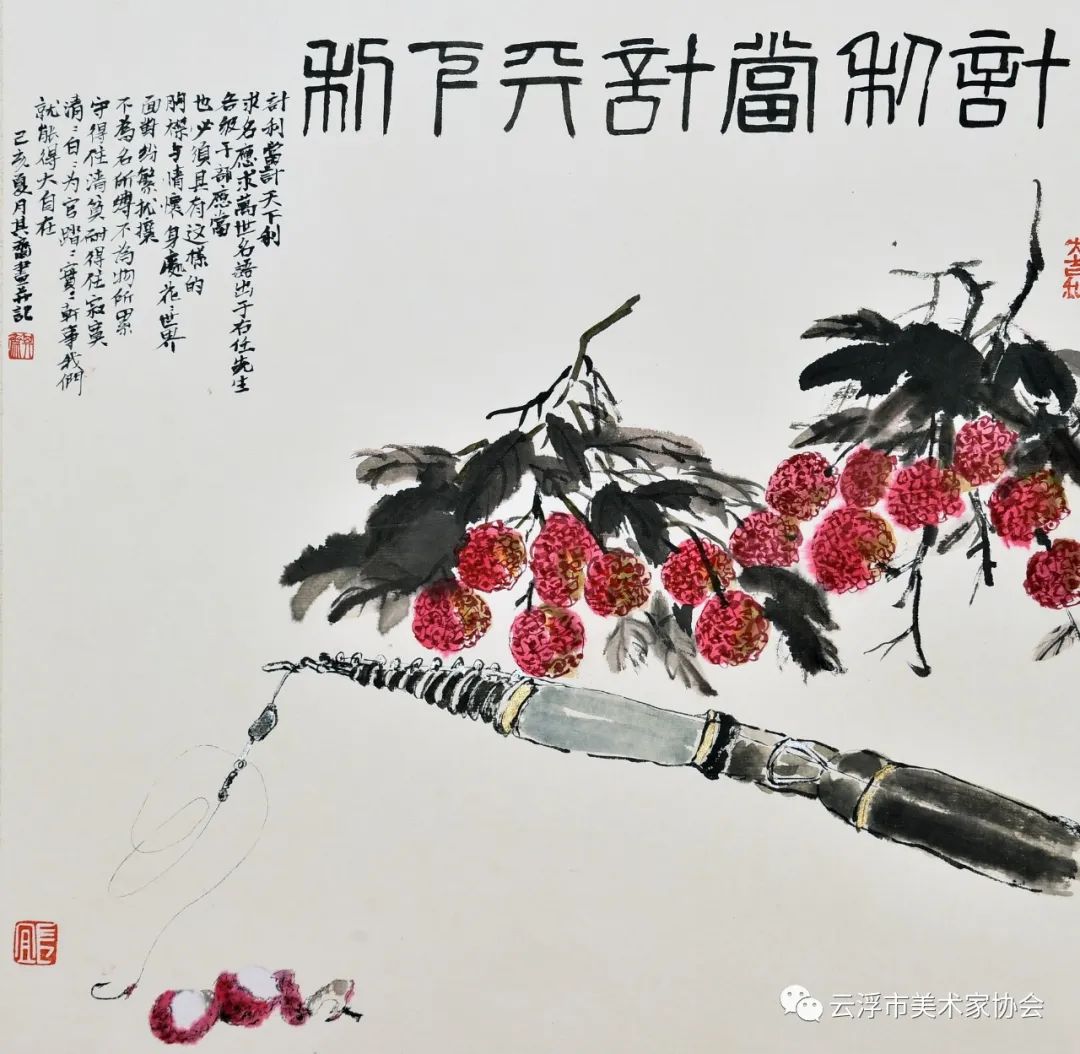 計利當計天下利
計利當計天下利
求名應求萬世名語出于右任先生
各級干部應當
也必須具有这樣的
胸襟与情懷身處花々世界
面對紛繁扰攘
不為名所縛不為物所累
守得住清貧耐得住寂寞
清々白々为官踏々實々幹事我們
就能得大自在
己亥夏月其齋畫并記
大吉利
長宜
云浮市美术家协会